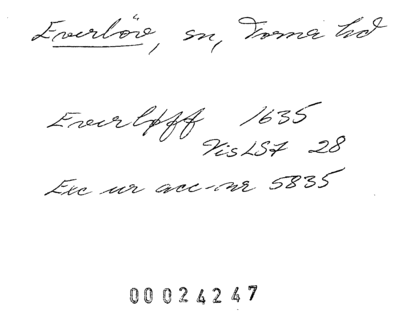 Everlöv, sn, Torna hd
Everløff 1635
VisLSt 28
Exc ur acc-nr 5835
00024247